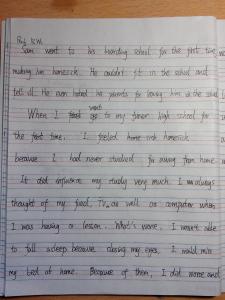 Sam went to his boarding school for the first time
making him homesick. He couldn't fit in the school and
fell ill. He even hated his parents for leaving him at the school
When I went to my Junior high school for
the first time. I feeled homesick
because I had never studied far away from home
It did influence my study very much. I always
thought of my food, TV as well as computer when
I was having a lesson. What's worse, I wasn't able
to fall asleep because closing my eyes, I would miss
my bed at home. Because of them, I did worse and